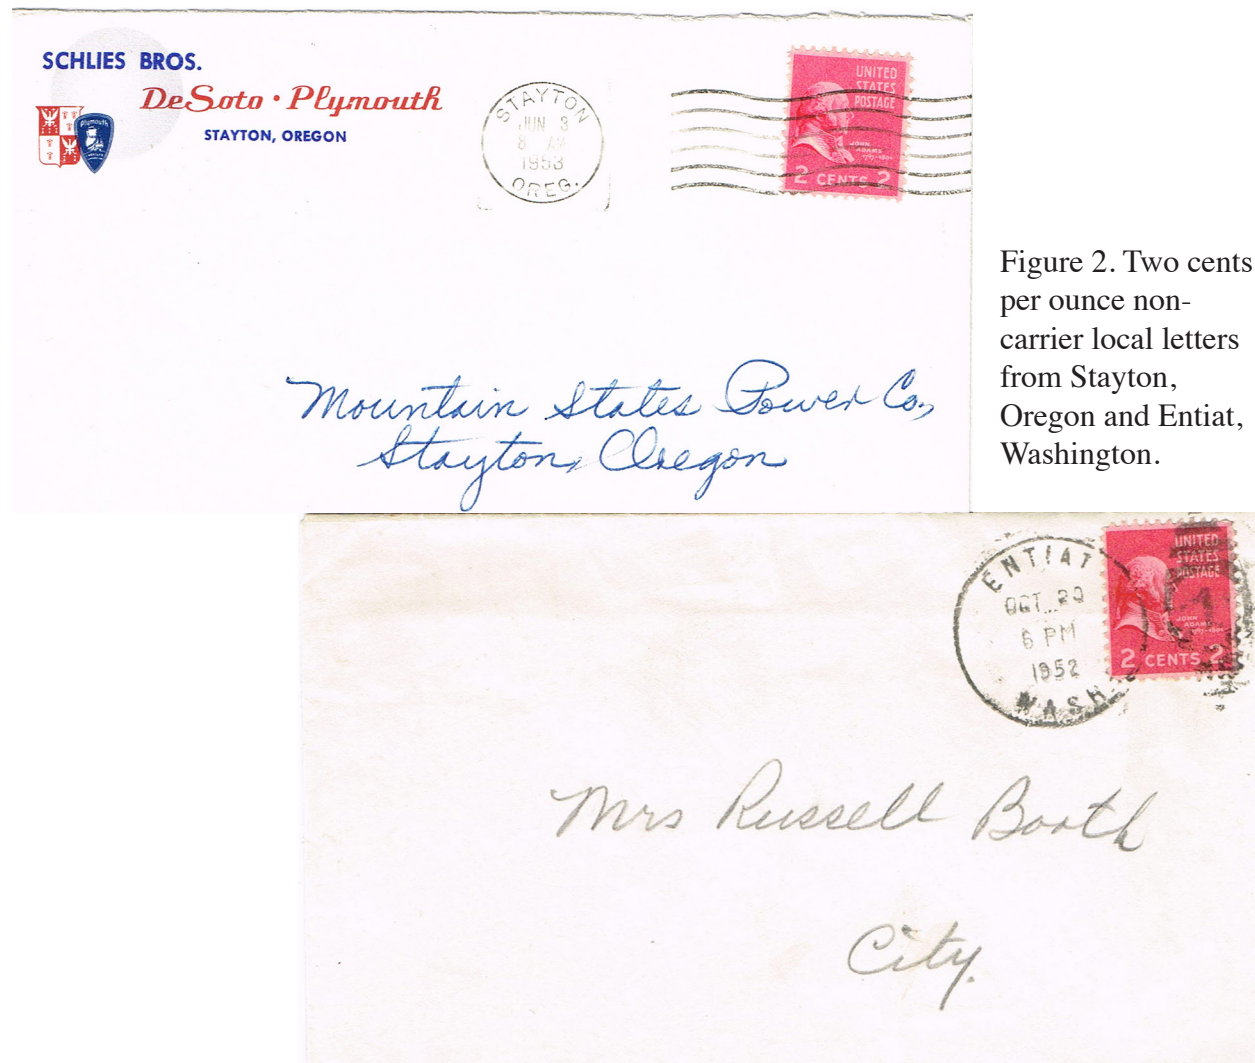 SCHLIES BROS.
DeSoto · Plymouth
STAYTON, OREGON
Plymouth
STAYTON
JUN 3
8 AM
1953
OREG.
UNITED
STATES
POSTAGE
JOHN
ADAMS
1797-1801
2 CENTS 2
Mountain States Power Co.,
Stayton, Oregon
Figure 2. Two cents
per ounce non-
carrier local letters
from Stayton,
Oregon and Entiat,
Washington.
ENTIAT
OCT
6 PM
1952
WASH.
UNITED
STATES
POSTAGE
JOHN
ADAMS
1797-1801
2 CENTS 2
Mrs Russell Booth
City.